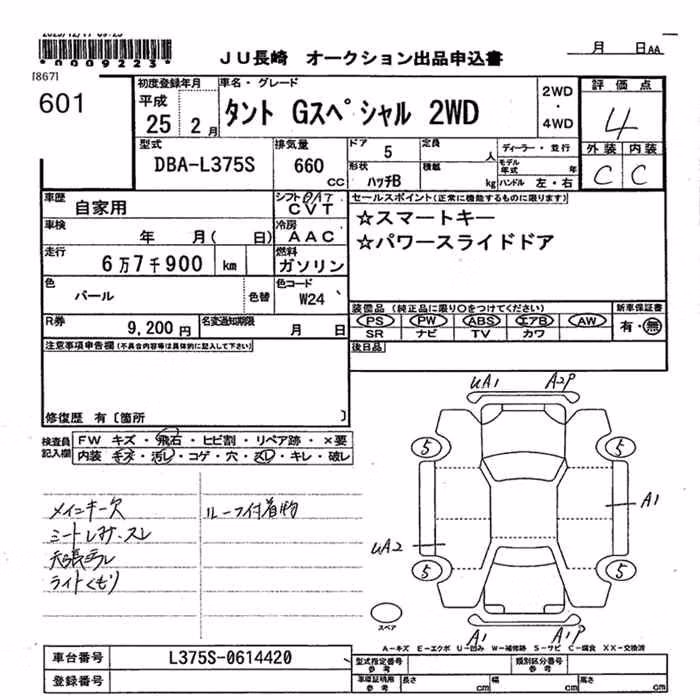 *0009223*
[867]
JU長崎 オークション出品申込書
月 日 AA
601
初度登録年月
平成
25 2月
車名・グレード
タント Gスペシャル 2WD
2WD
・
4WD
評価点
4
外装 内装
C C
型式
DBA-L375S
排気量
660
CC
ドア
5
形状
ハッチB
定員
人
積載
kg
ディーラー・並行
モデル年式 年
ハンドル 左・右
車歴
自家用
シフト
CVT
車検
年 月( 日)
冷房
AAC
走行
6万7千900 km
燃料
ガソリン
色
パール
色替
色コード
W24
R券
9,200円
名変通知期限
月 日
セールスポイント(正常に機能するものに限ります)
☆スマートキー
☆パワースライドドア
装備品(純正品に限り○をつけてください)
PS PW ABS エアB AW
SR ナビ TV カワ
新車保証書
有・無
後日品
注意事項申告欄(不具合内容等は具体的に記入して下さい)
修復歴 有〔箇所 〕
検査員
記入欄
FW キズ・飛石・ヒビ割・リペア跡・×要
内装 キズ・汚レ・コゲ・穴・スレ・キレ・破レ
メインキー欠
ルーフ付着物
ライトくもり
UA1 A2P
5 5
A1
UA2
5 5
A1 A1P
スペア
A-キズ E-エクボ U-凹み W-補修跡 S-サビ C-腐食 XX-交換済
車台番号 L375S-0614420
登録番号
型式指定番号
参考
類別区分番号
参考
車庫証明用
参考
長さ cm 幅 cm 高さ cm